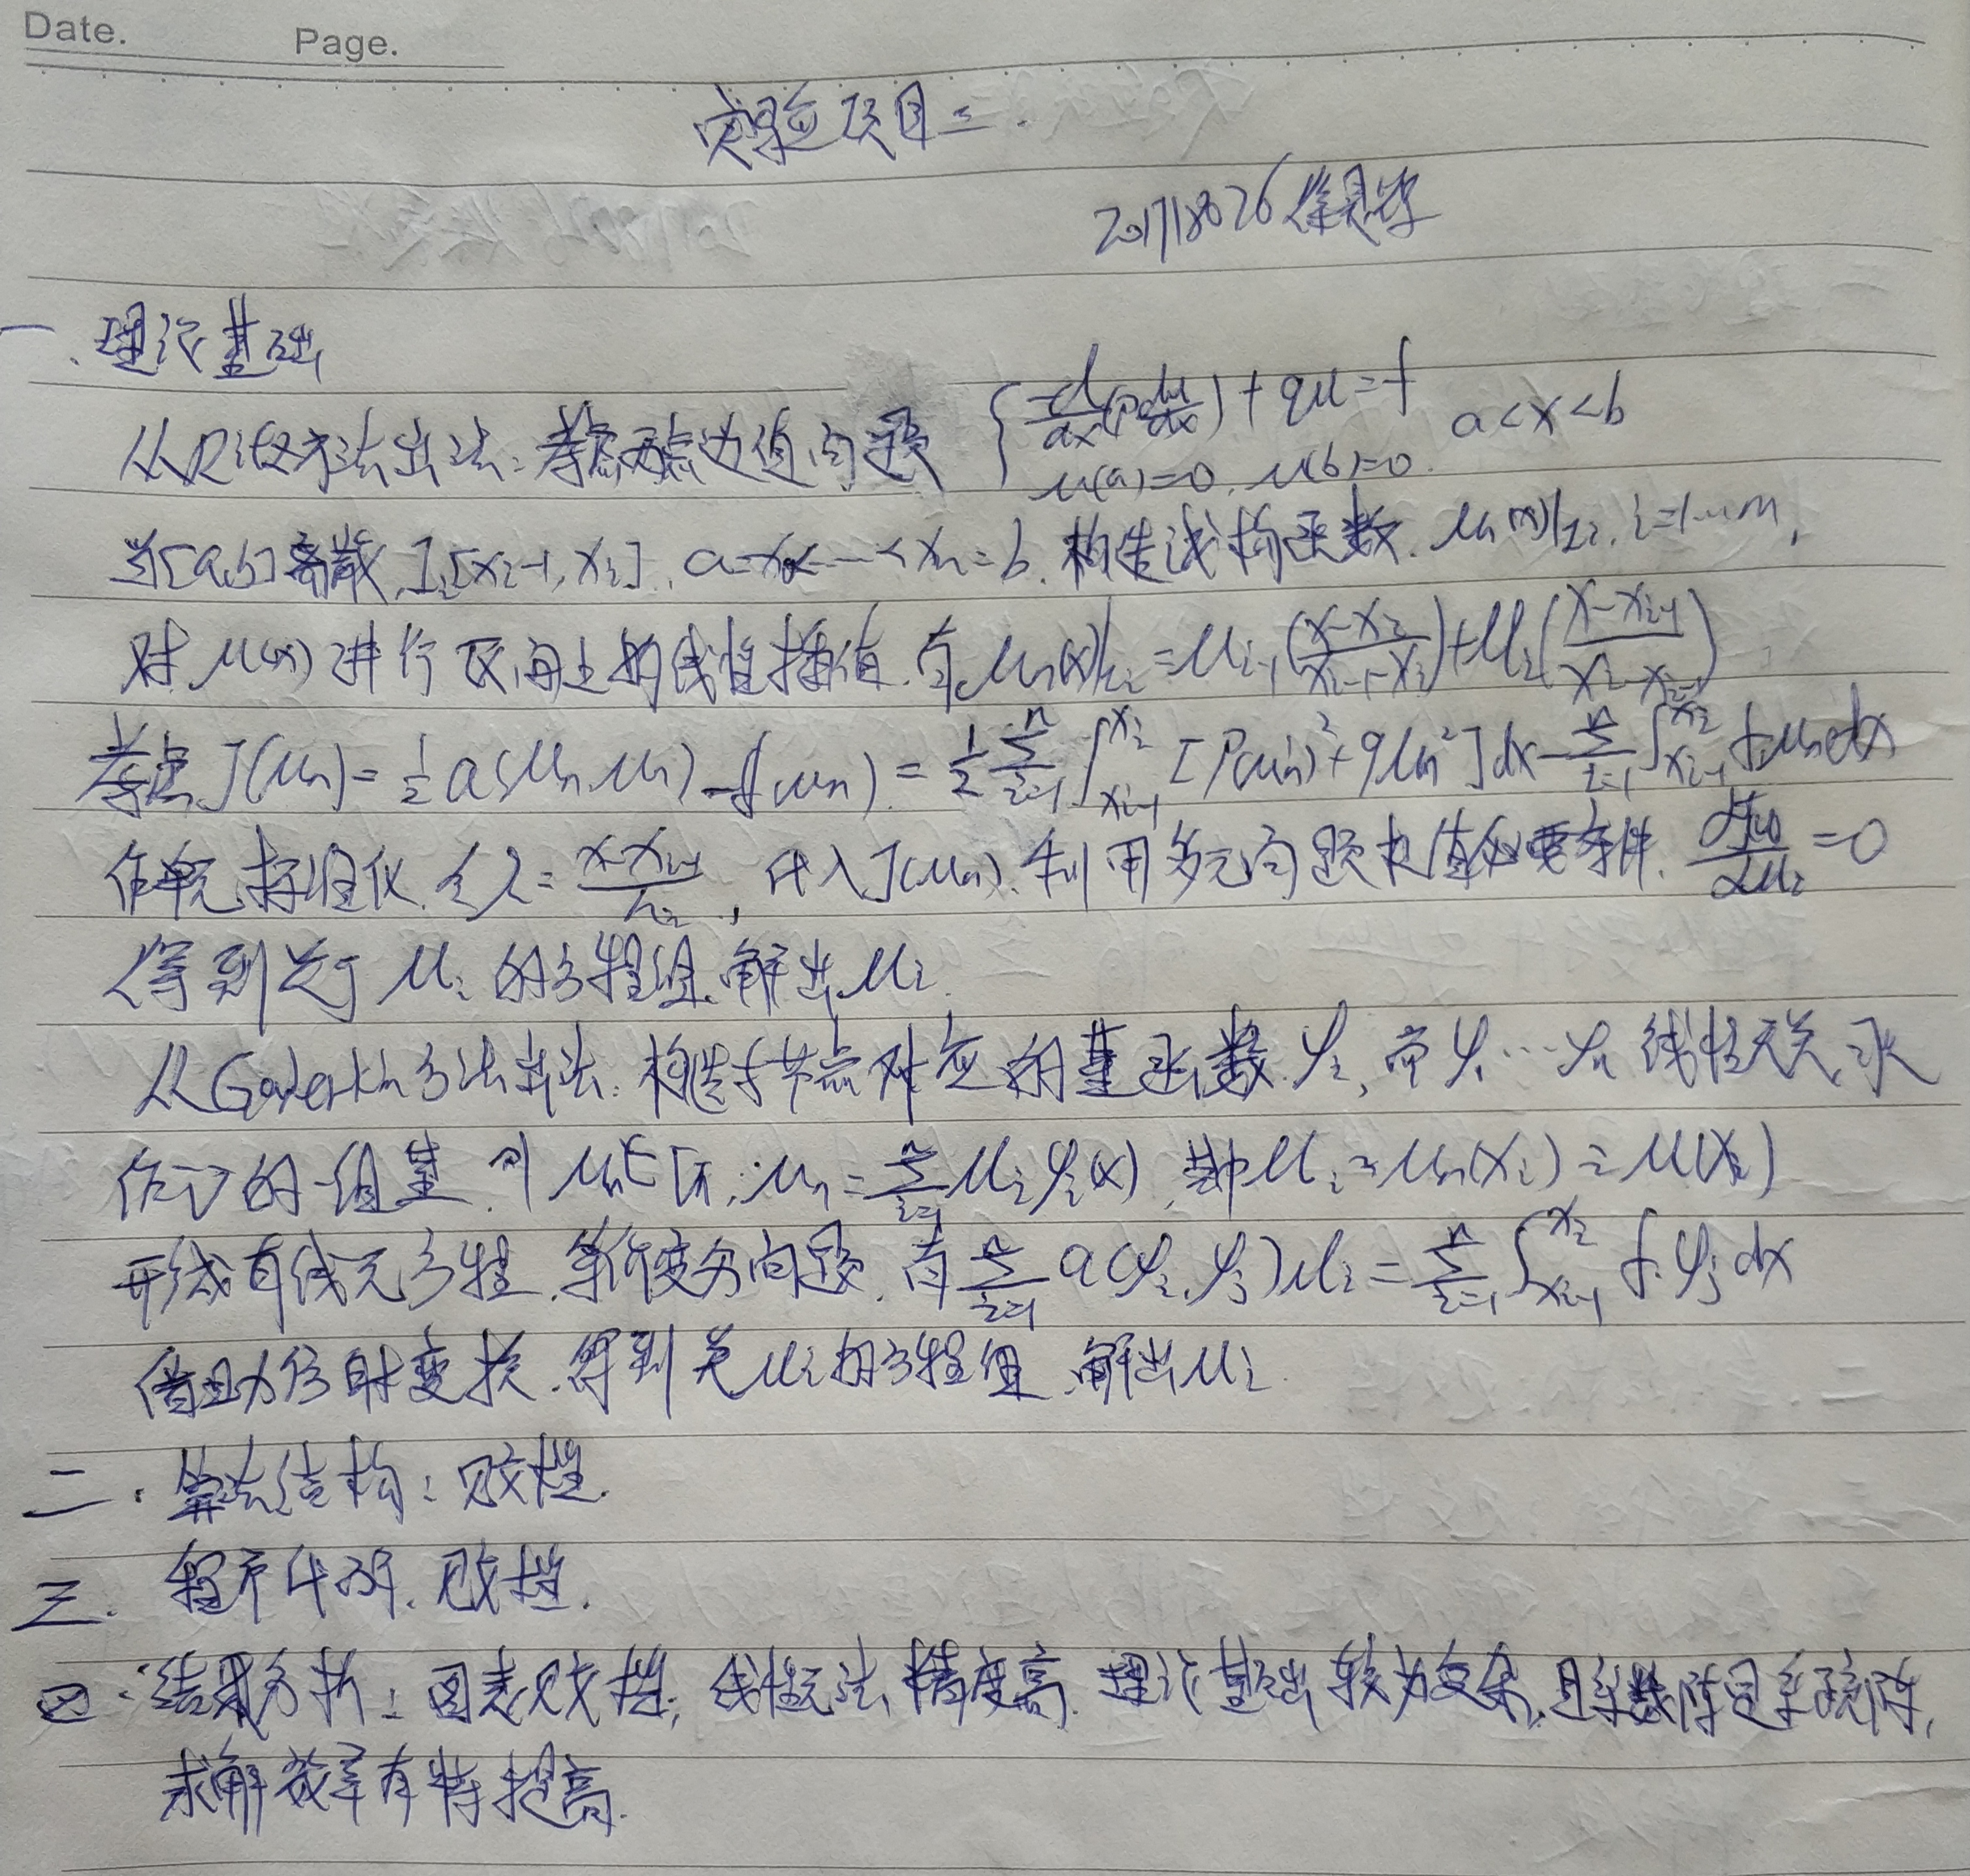 Date. Page.
实验项目二.
20171826 徐
一、理论基础
从Ritz方法出法:考虑两点边值问题 { -d/dx(p du/dx) + qu = f a<x<b
u(a)=0, u(b)=0.
当[a,b]离散, I_i[x_{i-1}, x_i], a=x_0<…<x_n=b. 构造试探函数. u_n(x)|_{I_i}, i=1…n,
对u(x)进行区间上的线性插值.有u_n(x)|_{I_i} = u_{i-1}(x-x_i / x_{i-1}-x_i) + u_i(x-x_{i-1} / x_i-x_{i-1})
考虑J(u_n) = 1/2 a(u_n, u_n) - f(u_n) = 1/2 ∑_{i=1}^{n} ∫_{x_{i-1}}^{x_i} [p(u_n')²+qu_n²]dx - ∑_{i=1}^{n} ∫_{x_{i-1}}^{x_i} f·u_n dx
作单元标准化.令λ = x-x_{i-1} / h_i, 代入J(u_n).利用多元问题极值必要条件. ∂J(u)/∂u_i = 0
得到关于u_i的方程组.解出u_i.
从Galerkin方法出法:构造节点对应的基函数φ_i,而φ_1…φ_n线性无关,
作 的一组基.则u_n∈ , u_n = ∑_{i=1}^{n} u_i φ_i(x), 其中u_i = u_n(x_i) = u(x_i)
形成有线元方程.等价变分问题.有∑_{i=1}^{n} a(φ_i, φ_j)u_i = ∑_{i=1}^{n} ∫_{x_{i-1}}^{x_i} f·φ_j dx
借助仿射变换.得到关u_i的方程组.解出u_i.
二.算法结构:见文档.
三.程序代码.见文档.
四.结果分析:图表见文档;线性元法精度高.理论基础较为复杂,且系数阵是系疏阵,
求解效率有待提高.